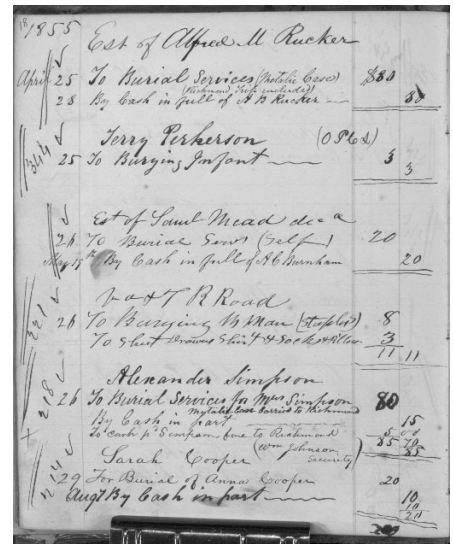 18
1855
Est of Alfred M Rucker
April 25 To Burial Services (Metalic Case) $80
(Richmond Trip included)
28 By Cash in full of A B Rucker 80
344
Terry Perkerson (O P Ld)
25 To Burying Infant 3
3
Est of Saml Mead dec a
26 To Burial Servs (Self) 20
May 15th By Cash in full of A C Burnham 20
221
Va & T R Road
26 To Burying 8
To Shirt Drawers & Socks & Pillow 3
11 11
Alexander Simpson
218
26 To Burial Services for Mrs Simpson 80
Mytalic Case Carried to Richmond
By Cash in part 15
To Cash pd Simpson fare to Richmond 5
85 85
214
Sarah Cooper (Wm Johnson
Security)
29 For Burial of Anna Cooper 20
Aug 7 By Cash in part 10
10
20